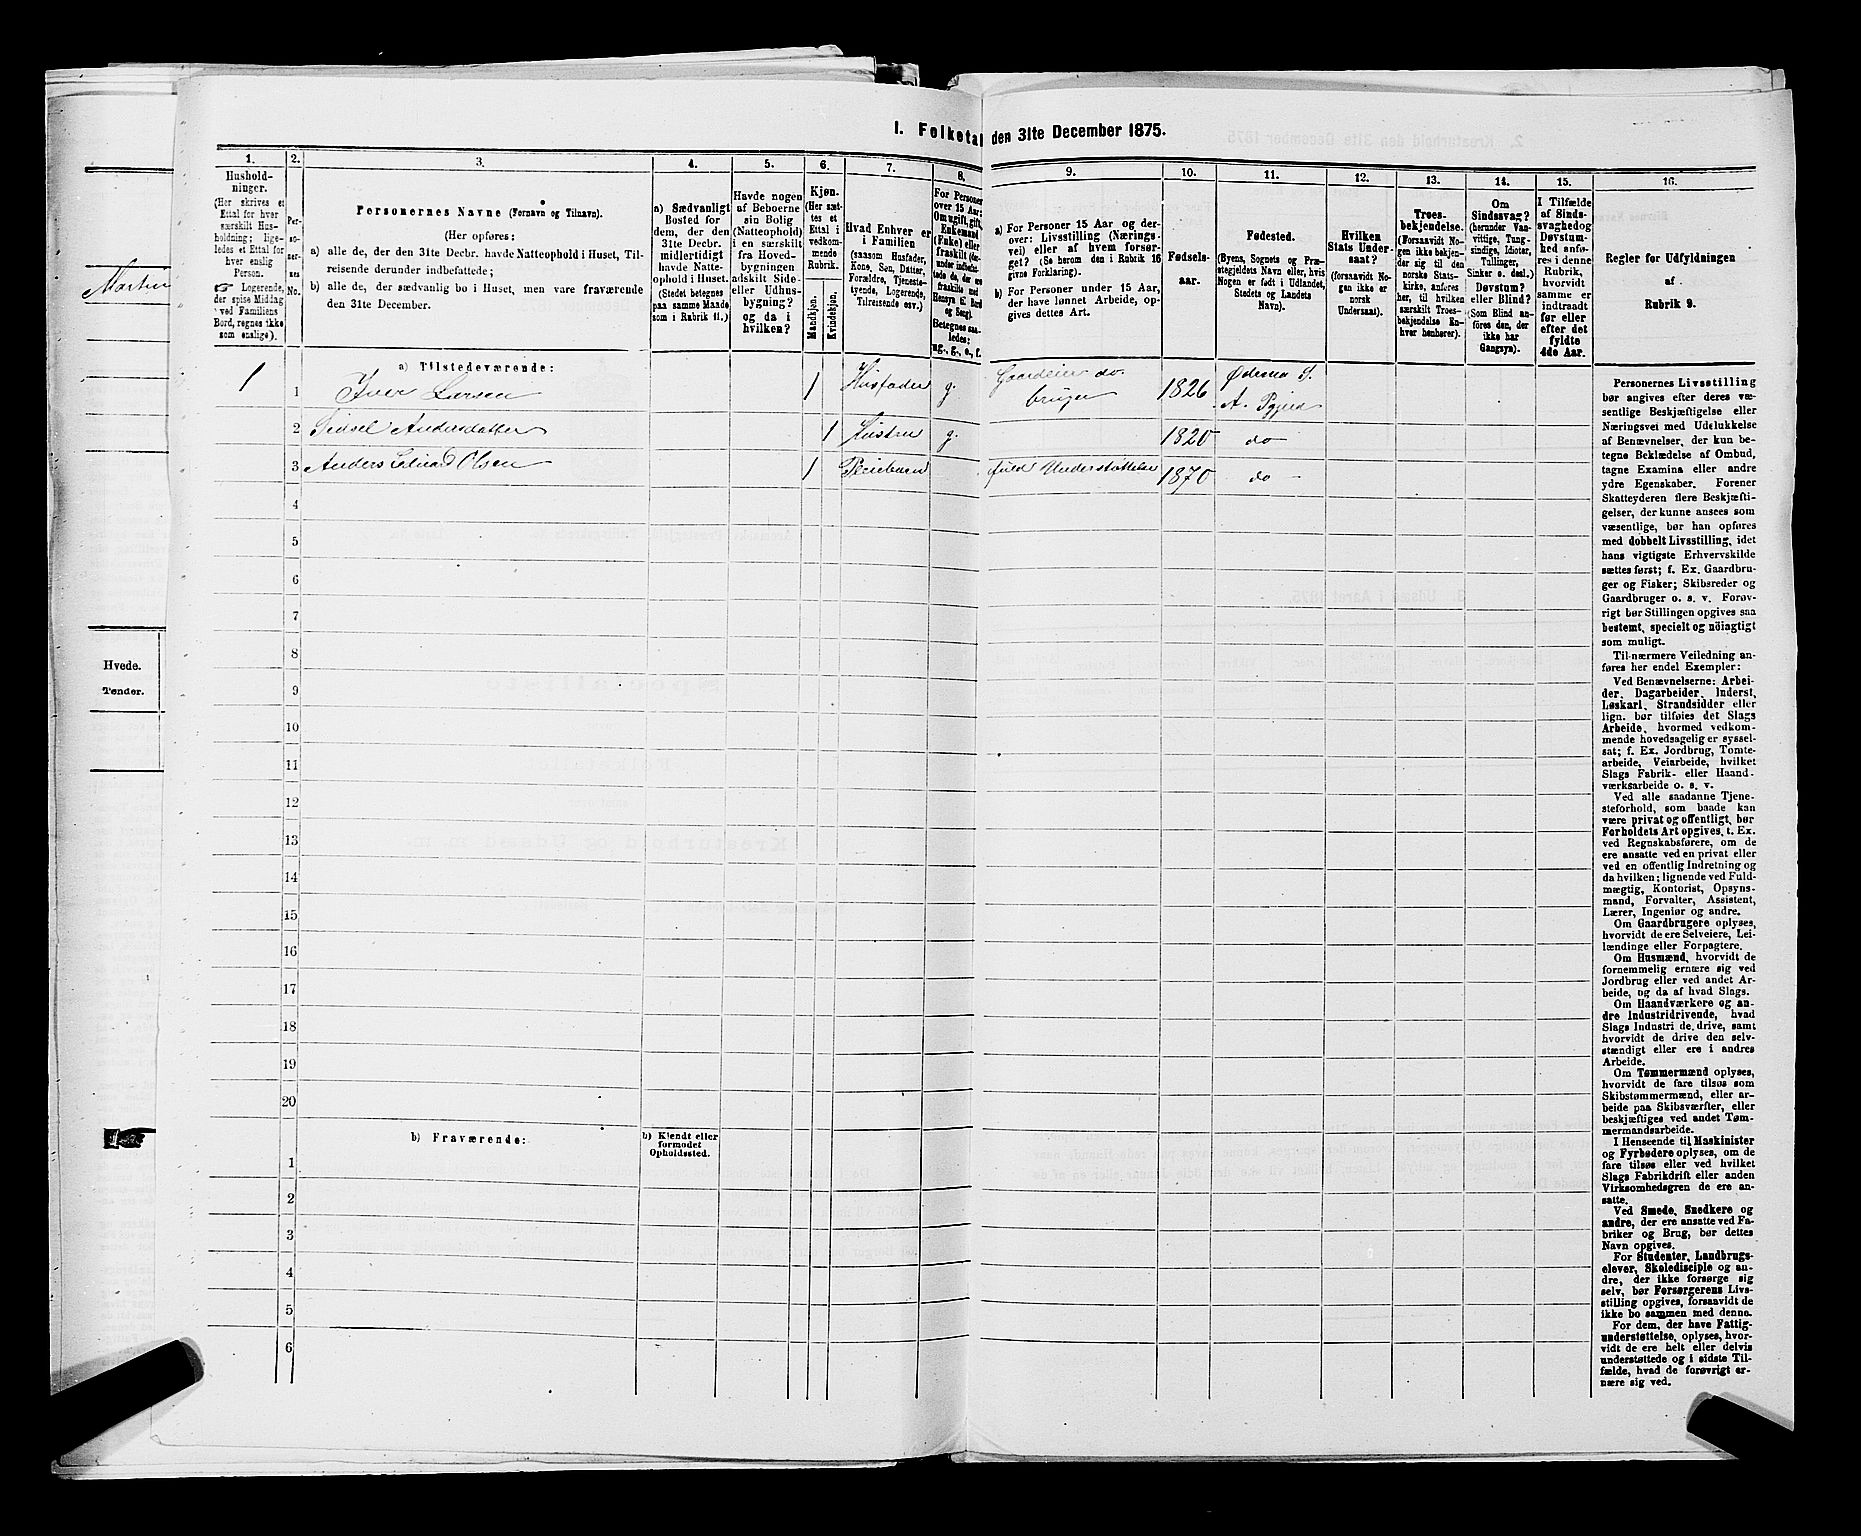 Martin
Hvede.
Tønder.
1. Folketal den 31te December 1875.
1. 2. 3. 4. 5. 6. 7. 8. 9. 10. 11. 12. 13. 14. 15. 16.
Husholdninger.
(Her skrives et
Ettal for hver
særskilt Husholdning; ligeledes et Ettal for
hver enslig
Person.
Logerende,
der spise Middag
ved Familiens
Bord, regnes ikke
som enslige).
Personernes No.
Personernes Navne (Fornavn og Tilnavn).
(Her opføres:
a) alle de, der den 31te Decbr. havde Natteophold i Huset, Tilreisende derunder indbefattede;
b) alle de, der sædvanlig bo i Huset, men vare fraværende
den 31te December.
a) Sædvanligt
Bosted for
dem, der den
31te Decbr.
midlertidigt
havde Natteophold i Huset.
(Stedet betegnes
paa samme Maade
som i Rubrik 11.)
Havde nogen
af Beboerne
sin Bolig
(Natteophold)
i en særskilt
fra Hovedbygningen
adskilt Side-
eller Udhusbygning?
og da i
hvilken?
Kjøn.
(Her sættes et
Ettal i
vedkommende
Rubrik.
Mandkjøn.
Kvindekjøn.
Hvad Enhver er
i Familien
(saasom Husfader,
Kone, Søn, Datter,
Forældre, Tjenestetyende, Logerende,
Tilreisende osv.)
For Personer
over 15 Aar:
Om ugift, gift,
Enkemand
(Enke) eller
fraskilt
Betegnes saaledes:
ug., g., e., f.
a) For Personer 15 Aar og derover: Livsstilling (Næringsvei) eller af hvem forsørget? (Se herom den i Rubrik 16
givne Forklaring).
b) For Personer under 15 Aar,
der have lønnet Arbeide, opgives dettes Art.
Fødselsaar.
Fødested.
(Byens, Sognets og Præstegjeldets Navn eller, hvis
Nogen er født i Udlandet,
Stedets og Landets
Navn).
Hvilken
Stats Undersaat?
(forsaavidt Nogen ikke er
norsk
Undersaat).
Troesbekjendelse.
(Forsaavidt Nogen ikke bekjender sig til den
norske Statskirke, anføres
her, til hvilken
særskilt Troesbekjendelse Enhver henhører).
Om
Sindssvag?
(herunder Vanvittige, Tungsindige, Idioter,
Tullinger,
Sinker o. desl.)
Døvstum?
eller Blind?
(Som Blind anføres den, der
ikke har
Gangsyn).
I Tilfælde
af Sindssvaghed og
Døvstumhed anføres i denne
Rubrik,
hvorvidt
samme er
indtraadt
før eller
efter det
fyldte
4de Aar.
Regler for Udfyldningen
af
Rubrik 9.
a) Tilstedeværende:
1 1 Iver Larsen 1 Husfader g. Gaardeier do bruger 1826 Ødema S. A. Pgjeld
2 Sidsel Andersdatter 1 Hustru g. 1820 do
3 Anders Eduard Olsen 1 Pleiebarn fuld Understøttelse 1870 do
4
5
6
7
8
9
10
11
12
13
14
15
16
17
18
19
20
b) Fraværende:
b) Kjendt eller
formodet
Opholdssted.
1
2
3
4
5
6
Personernes Livsstilling
bør angives efter deres væsentlige Beskjæftigelse eller
Næringsvei med Udelukkelse
af Benævnelser, der kun betegne Beklædelse af Ombud,
tagne Examina eller andre
ydre Egenskaber. Forener
Skatteyderen flere Beskjæftigelser, der kunne ansees som
væsentlige, bør han opføres
med dobbelt Livsstilling, idet
hans vigtigste Erhvervskilde
sættes først; f. Ex. Gaardbruger og Fisker; Skibsreder og
Gaardbruger o. s. v. Forøvrigt bør Stillingen opgives saa
bestemt, specielt og nöiagtigt
som muligt.
Til nærmere Veiledning anføres her endel Exempler:
Ved Benævnelserne: Arbeider, Dagarbeider, Inderst,
Løskarl, Strandsidder eller
lign. bør tilføies det Slags
Arbeide, hvormed vedkommende hovedsagelig er sysselsat; f. Ex. Jordbrug, Tomtearbeide, Veiarbeide, hvilket
Slags Fabrik- eller Haandværksarbeide o. s. v.
Ved alle saadanne Tjenesteforhold, som baade kan
være privat og offentligt, bør
Forholdets Art opgives, t. Ex.
ved Regnskabsførere, om de
ere ansatte ved en privat eller
ved en offentlig Indretning og
da hvilken; lignende ved Fuldmægtig, Kontorist, Opsynsmand, Forvalter, Assistent,
Lærer, Ingeniør og andre.
Om Gaardbrugere oplyses,
hvorvidt de ere Selveiere, Leilændinge eller Forpagtere.
Om Husmænd, hvorvidt de
fornemmelig ernære sig ved
Jordbrug eller ved andet Arbeide, og da af hvad Slags.
Om Haandværkere og andre Industridrivende, hvad
Slags Industri de drive, samt
hvorvidt de drive den selvstændigt eller ere i andres
Arbeide.
Om Tømmermænd oplyses,
hvorvidt de fare tilsøs som
Skibstømmermænd, eller arbeide paa Skibsværfter, eller
beskjæftiges ved andet Tømmermandsarbeide.
I Henseende til Maskinister
og Fyrbødere oplyses, om de
fare tilsøs eller ved hvilket
Slags Fabrikdrift eller anden
Virksomhedsgren de ere ansatte.
Ved Smede, Snedkere og
andre, der ere ansatte ved Fabriker og Brug, bør dettes
Navn opgives.
For Studenter, Landbrugselever, Skoledisciple og andre, der ikke forsørge sig
selv, bør Forsørgerens Livsstilling opgives, forsaavidt de
ikke bo sammen med denne.
For dem, der have Fattigunderstøttelse, oplyses, hvorvidt de ere helt eller delvis
understøttede og i sidste Tilfælde, hvad de forøvrigt ernære sig ved.